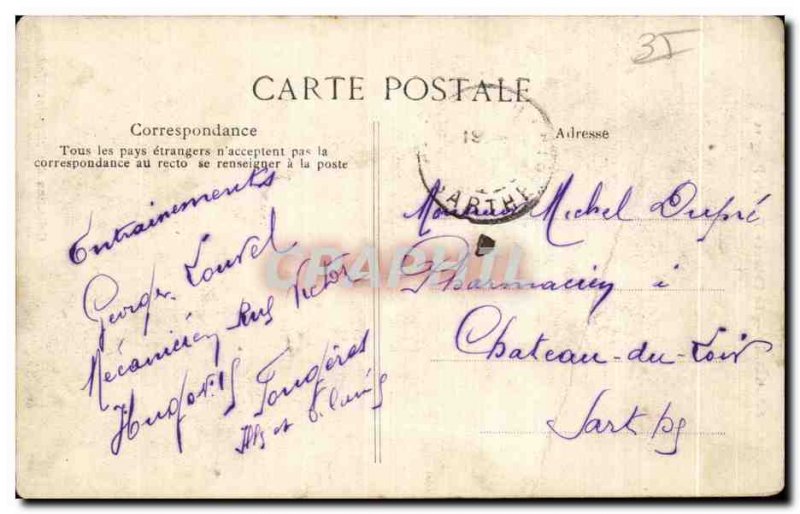 35
CARTE POSTALE
Correspondance
Tous les pays étrangers n'acceptent pas la
correspondance au recto se renseigner à la poste
Entrainements
Georges Louvel
Mécanicien Rue Victor
Hugo n: 15
Fougères
Ille et Vilaine
Adresse
19
SARTHE
Monsieur Michel Dupré
Pharmacien à
Chateau-du-Loir
Sarthe
CPAPHIL